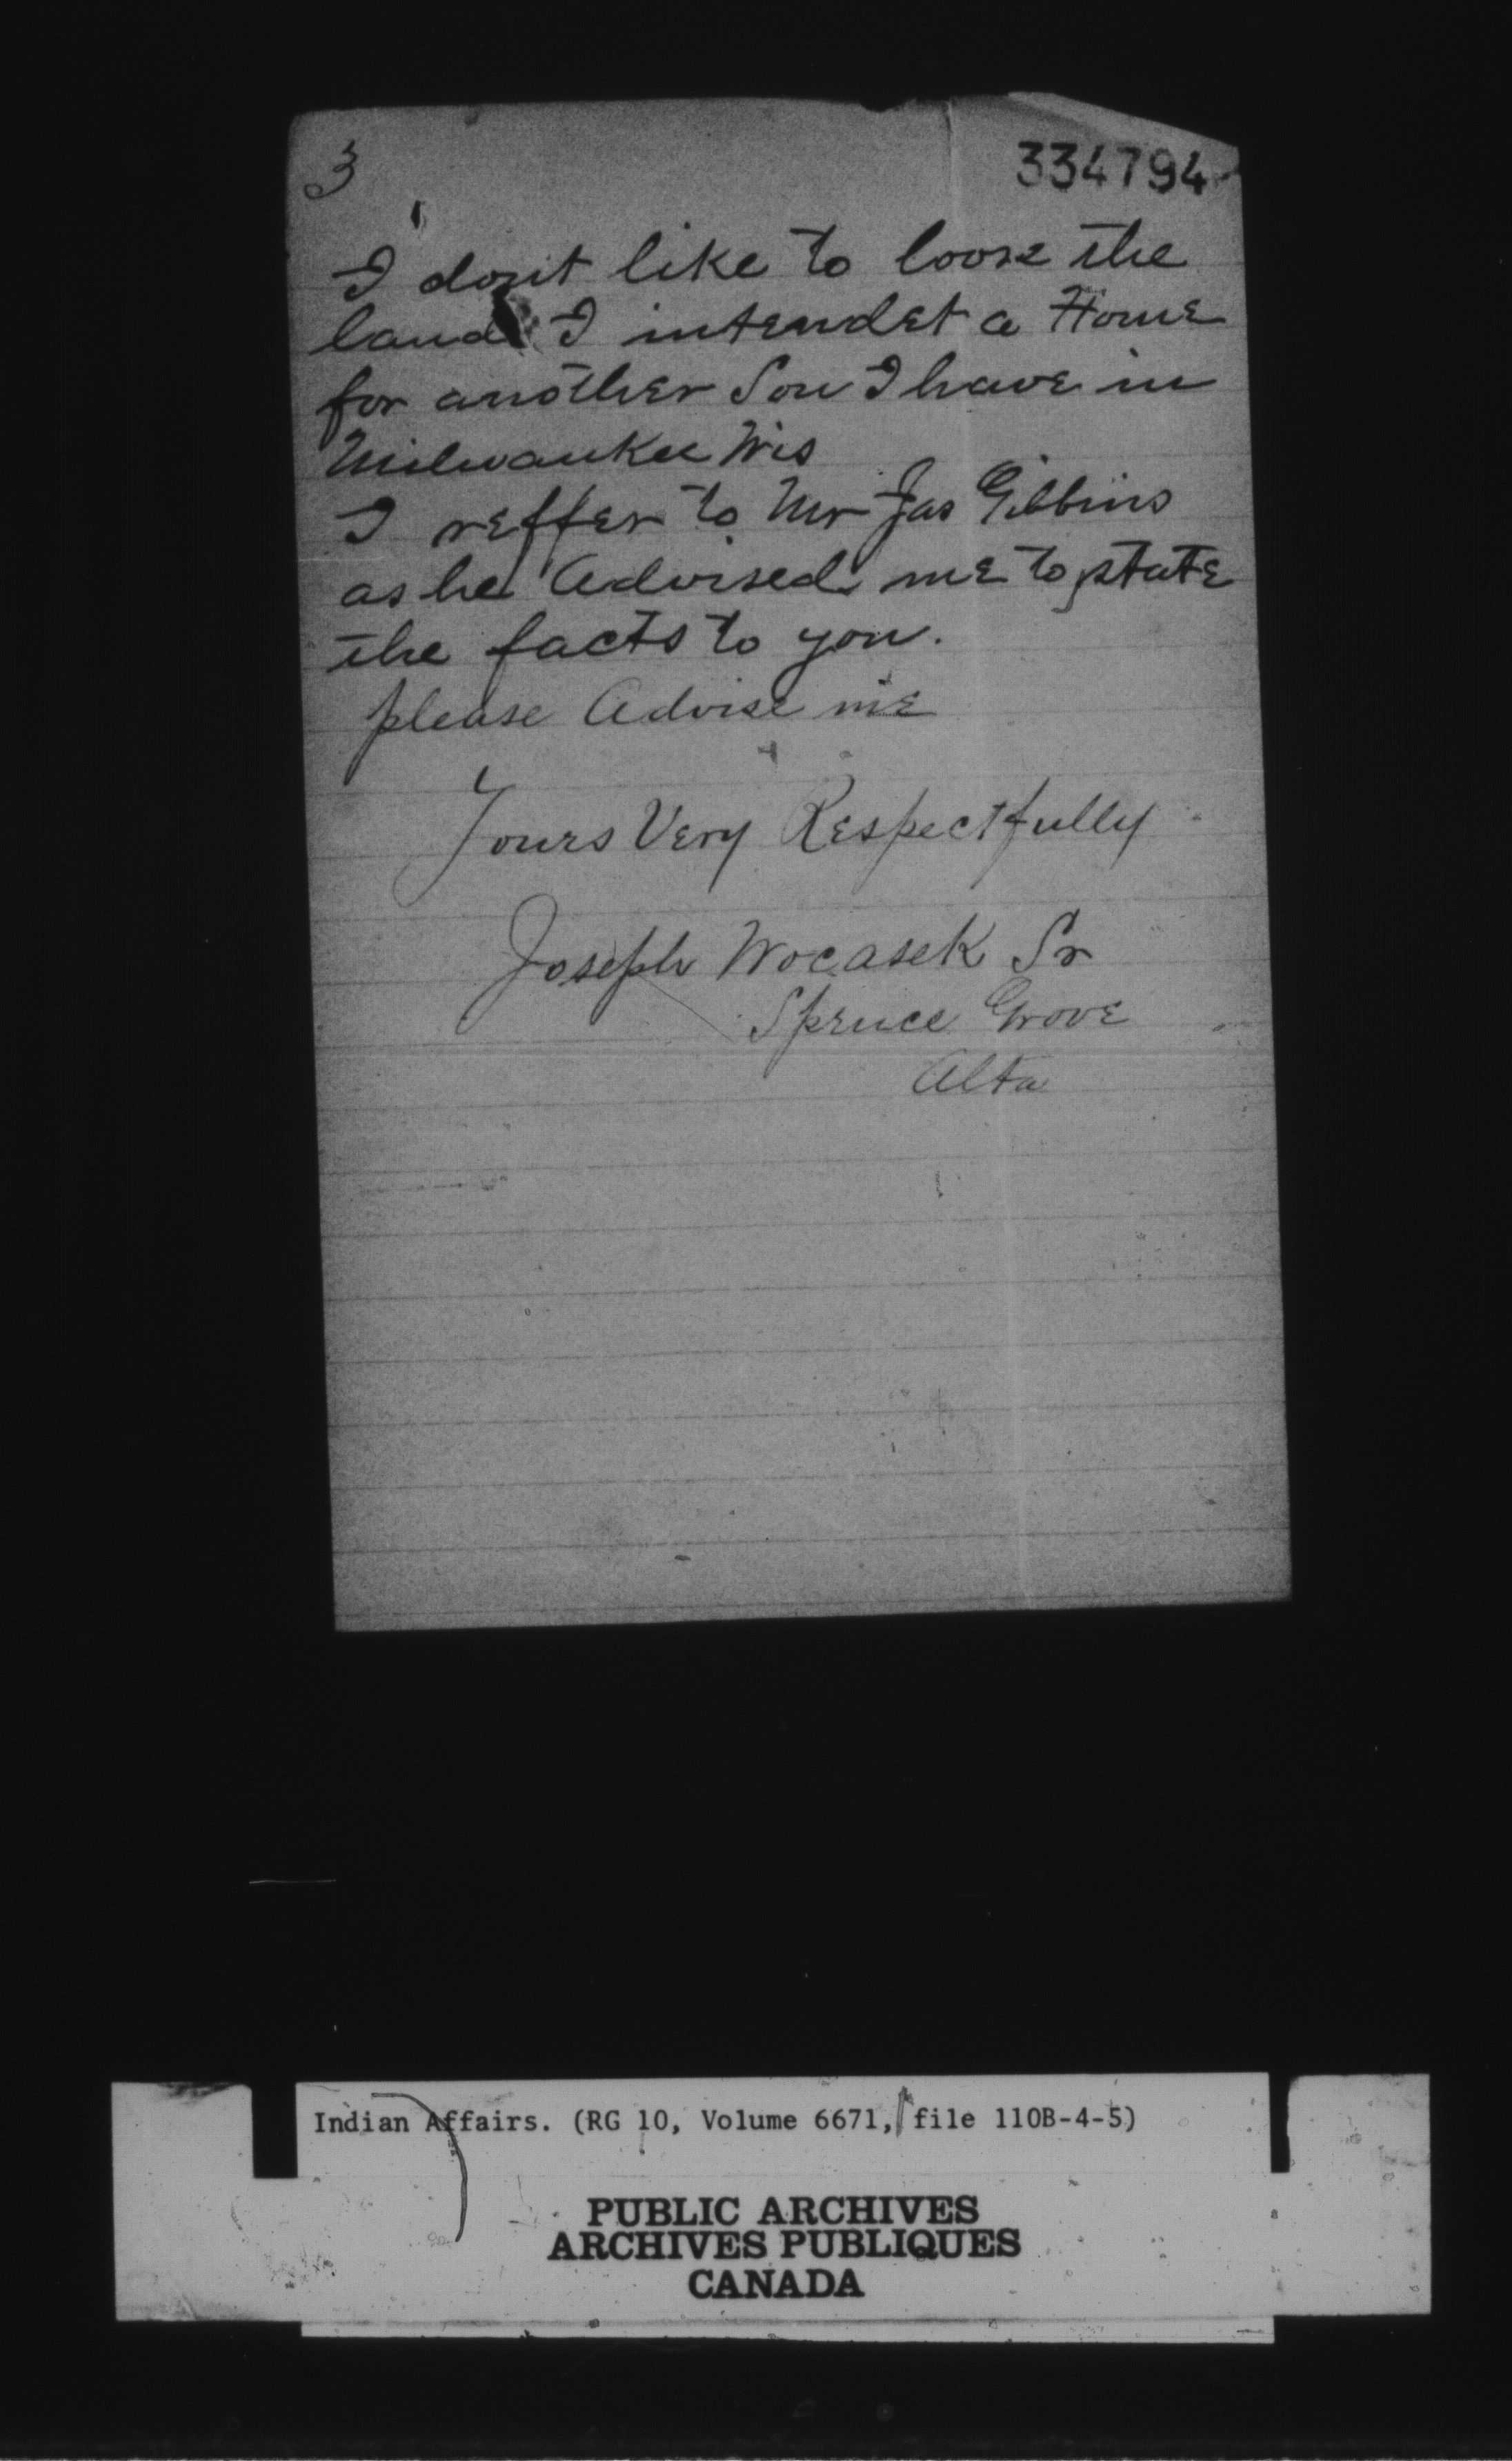 3
334794
I dont like to loose the
land I intendet a Home
for another Son I have in
Milwaukee Wis
I reffer to Mr Jas Gibbins
as he Advised me to state
the facts to you.
please Advise me
Yours Very Respectfully
Joseph Wocasek Sr
Spruce Grove
Alta
Indian Affairs. (RG 10, Volume 6671, file 110B-4-5)
PUBLIC ARCHIVES
ARCHIVES PUBLIQUES
CANADA